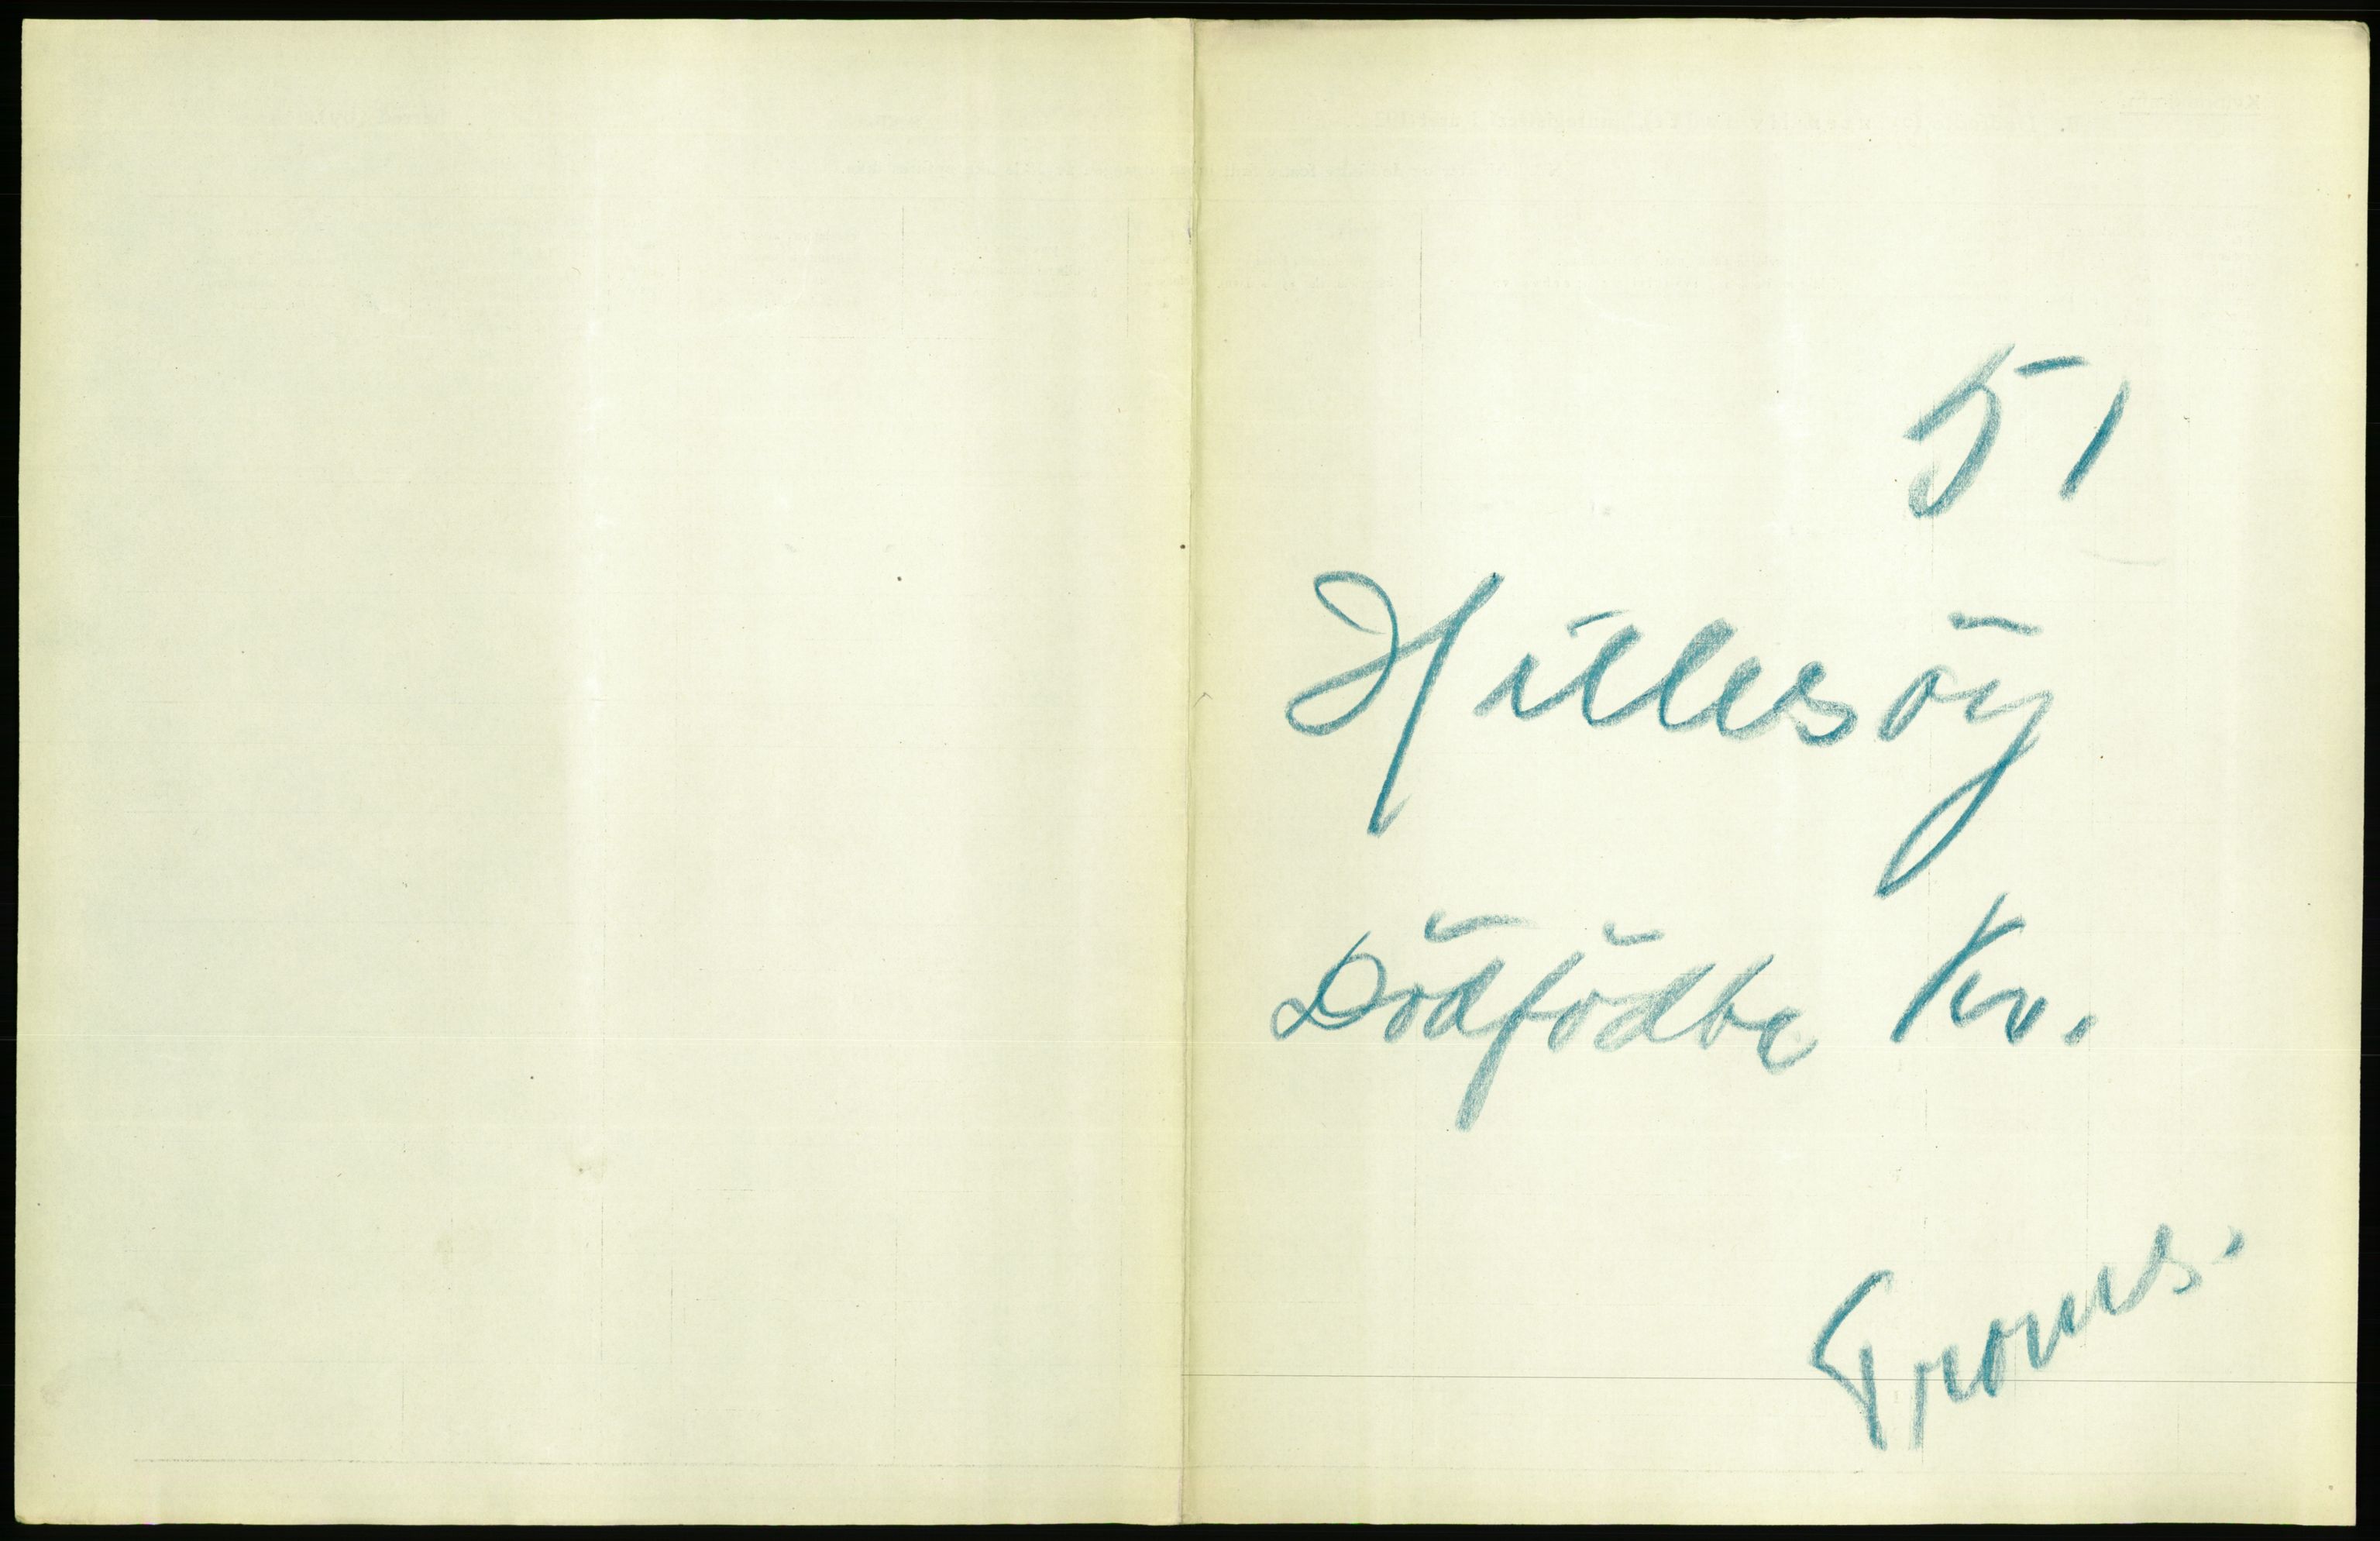 51
Hillesöy
Dödfödte Kv.
Troms.